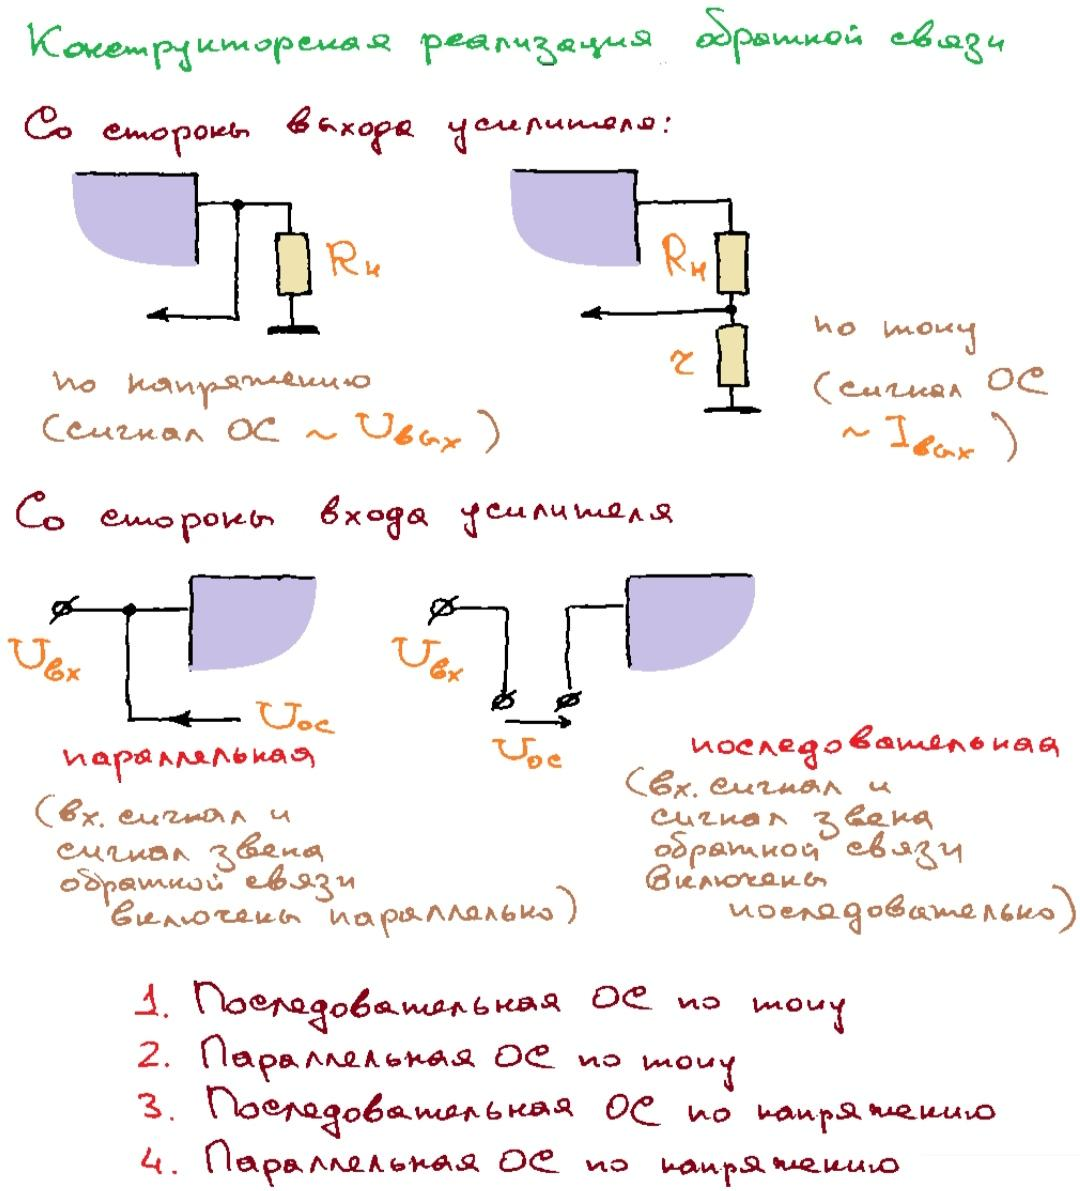 Конструкторская реализация обратной связи
Со стороны выхода усилителя:
Rн
Rн
r
по напряжению
(сигнал ОС ~ Uвых)
по току
(сигнал ОС
~ Iвых)
Со стороны входа усилителя
Uвх
Uос
параллельная
(вх. сигнал и
сигнал звена
обратной связи
включены параллельно)
Uвх
Uос
последовательная
(вх. сигнал и
сигнал звена
обратной связи
включены
последовательно)
1. Последовательная ОС по току
2. Параллельная ОС по току
3. Последовательная ОС по напряжению
4. Параллельная ОС по напряжению